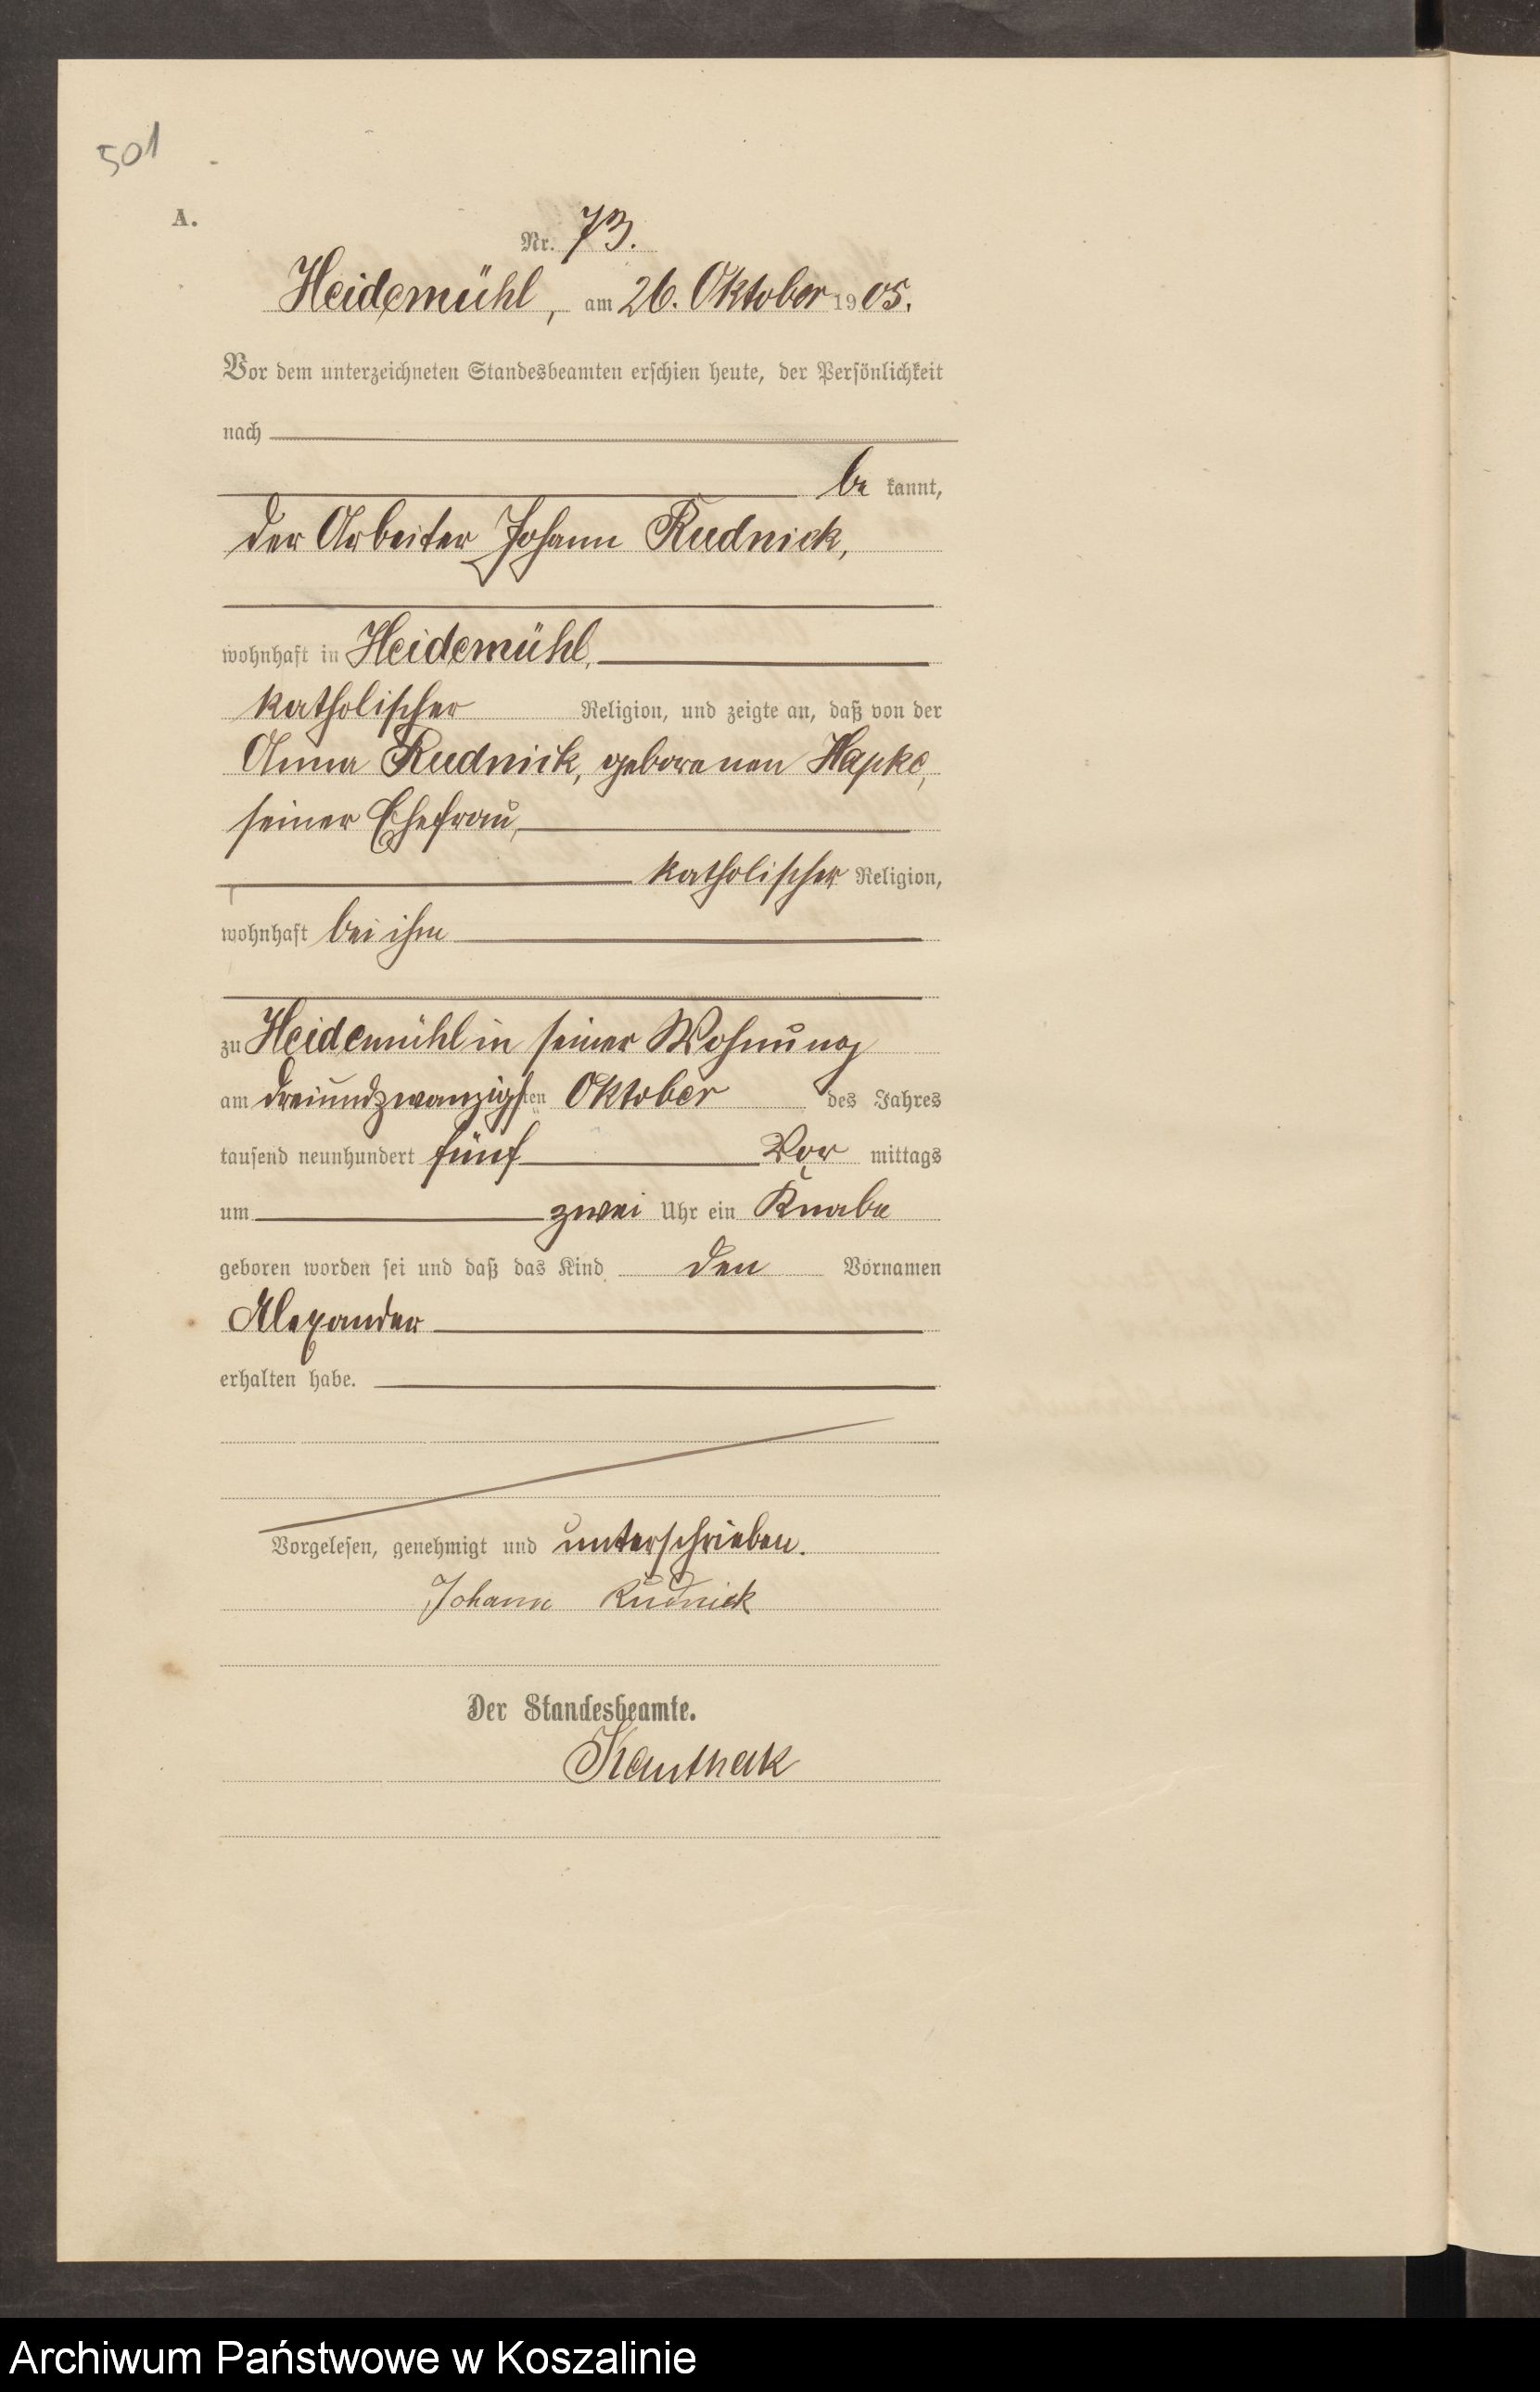 501
A.
Nr. 73.
Heidemühl, am 26. Oktober 1905.
Vor dem unterzeichneten Standesbeamten erschien heute, der Persönlichkeit
nach
be kannt,
der Arbeiter Johann Rudnick,
wohnhaft in Heidemühl,
katholischer Religion, und zeigte an, daß von der
Anna Rudnick, geborenen Hapke,
seiner Ehefrau,
katholischer Religion,
wohnhaft bei ihm
zu Heidemühl in seiner Wohnung
am dreiundzwanzigsten Oktober des Jahres
tausend neunhundert fünf Vor mittags
um zwei Uhr ein Knabe
geboren worden sei und daß das Kind den Vornamen
Alexander
erhalten habe.
Vorgelesen, genehmigt und unterschrieben.
Johann Rudnick
Der Standesbeamte.
Kanthak
Archiwum Państwowe w Koszalinie